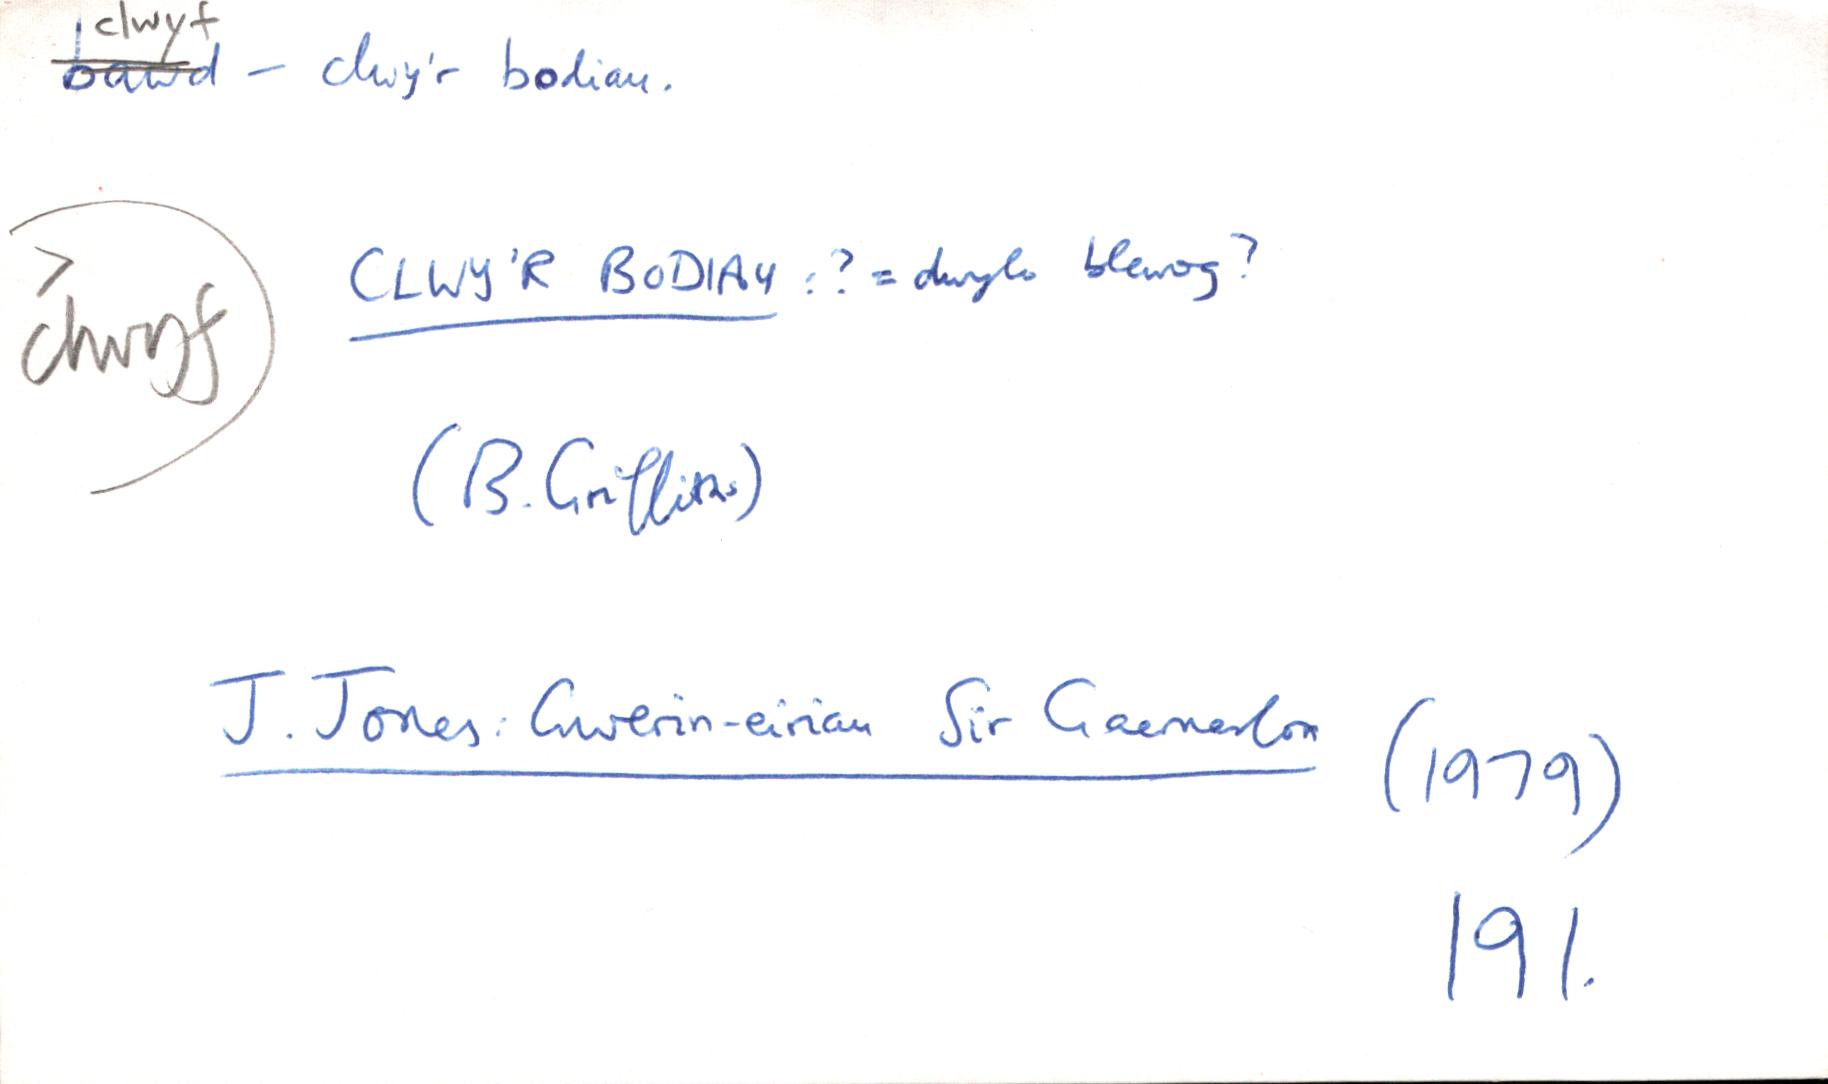 clwyf
bawd – clwy'r bodiau.
CLWY'R BODIAU :? = dwylo blewog?
> clwyf
(B. Griffiths)
J. Jones: Gwerin-eiriau Sir Gaernarfon (1979)
191.